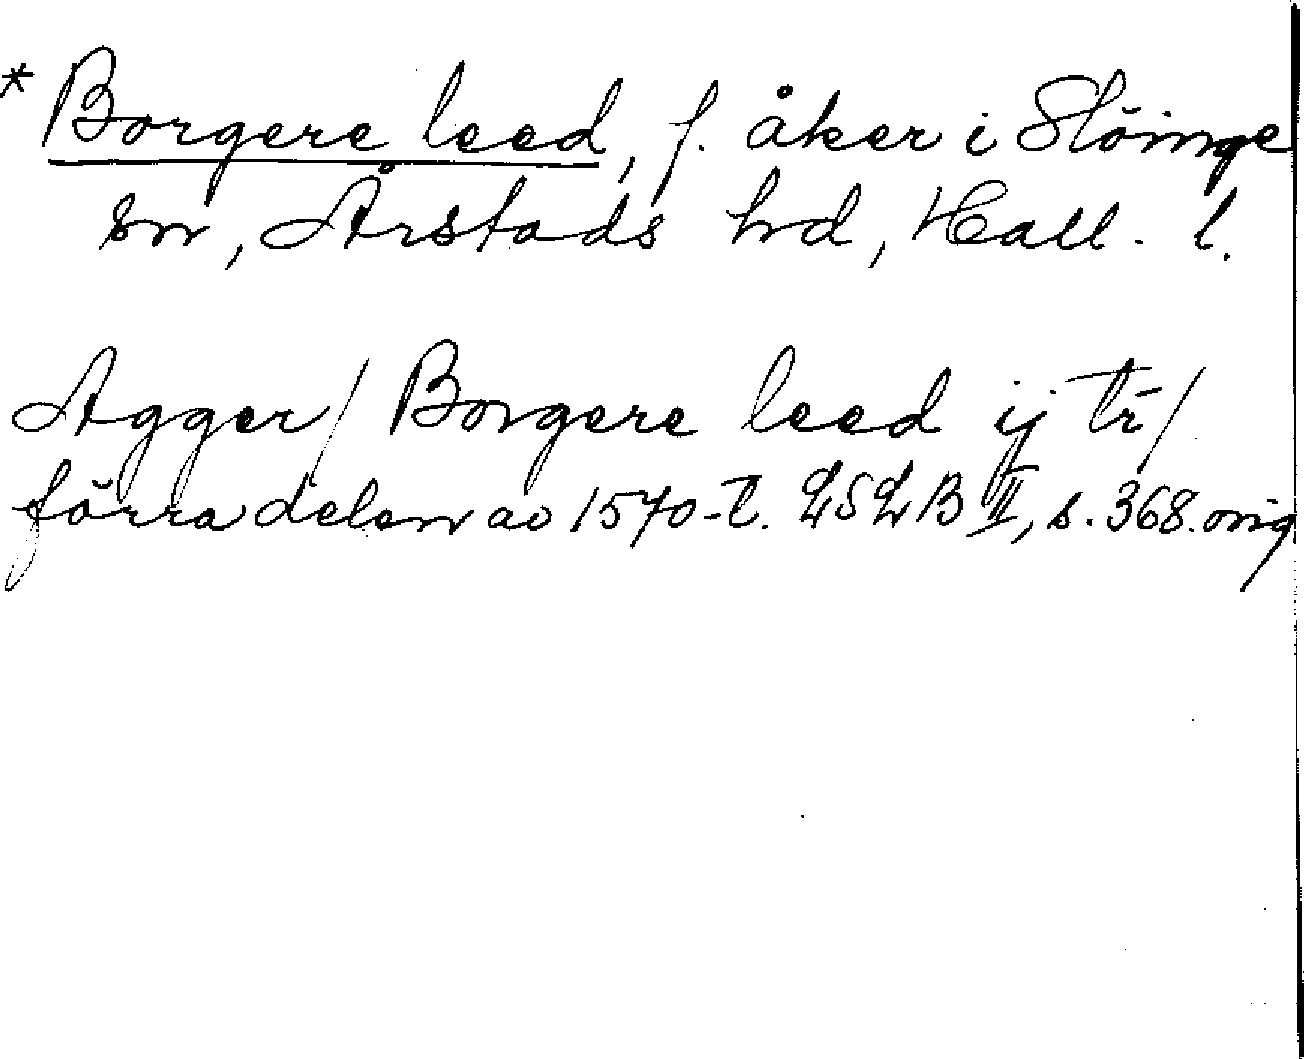 * Borgere leed, f. åker i Slöinge
sn, Årstads hd, Hall. l.
Agger/ Borgere leed ij tr/
förra delen av 1570-t. LSLB III, s. 368. orig